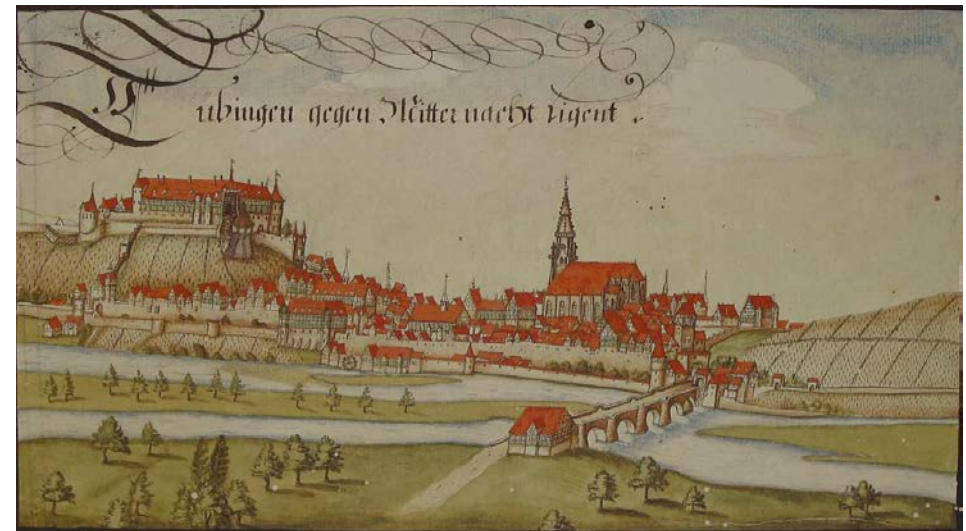 Tübingen gegen Mitternacht ligent.